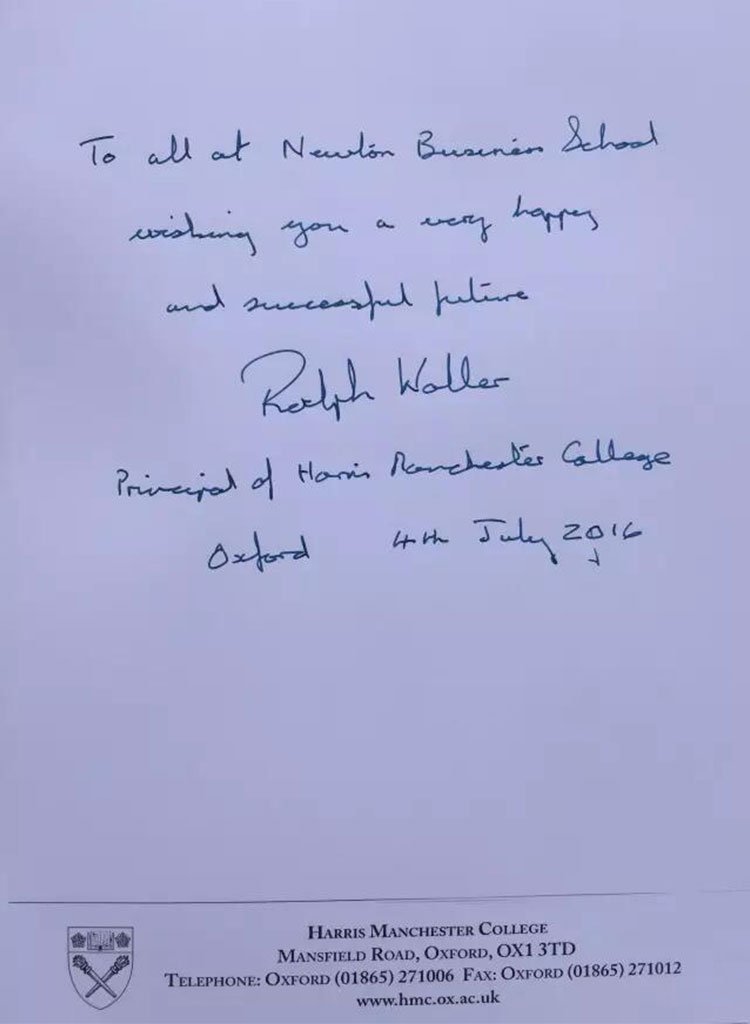 To all at Newton Business School
wishing you a very happy
and successful future
Ralph Waller
Principal of Harris Manchester College
Oxford 4th July 2016
HARRIS MANCHESTER COLLEGE
MANSFIELD ROAD, OXFORD, OX1 3TD
TELEPHONE: OXFORD (01865) 271006 FAX: OXFORD (01865) 271012
www.hmc.ox.ac.uk